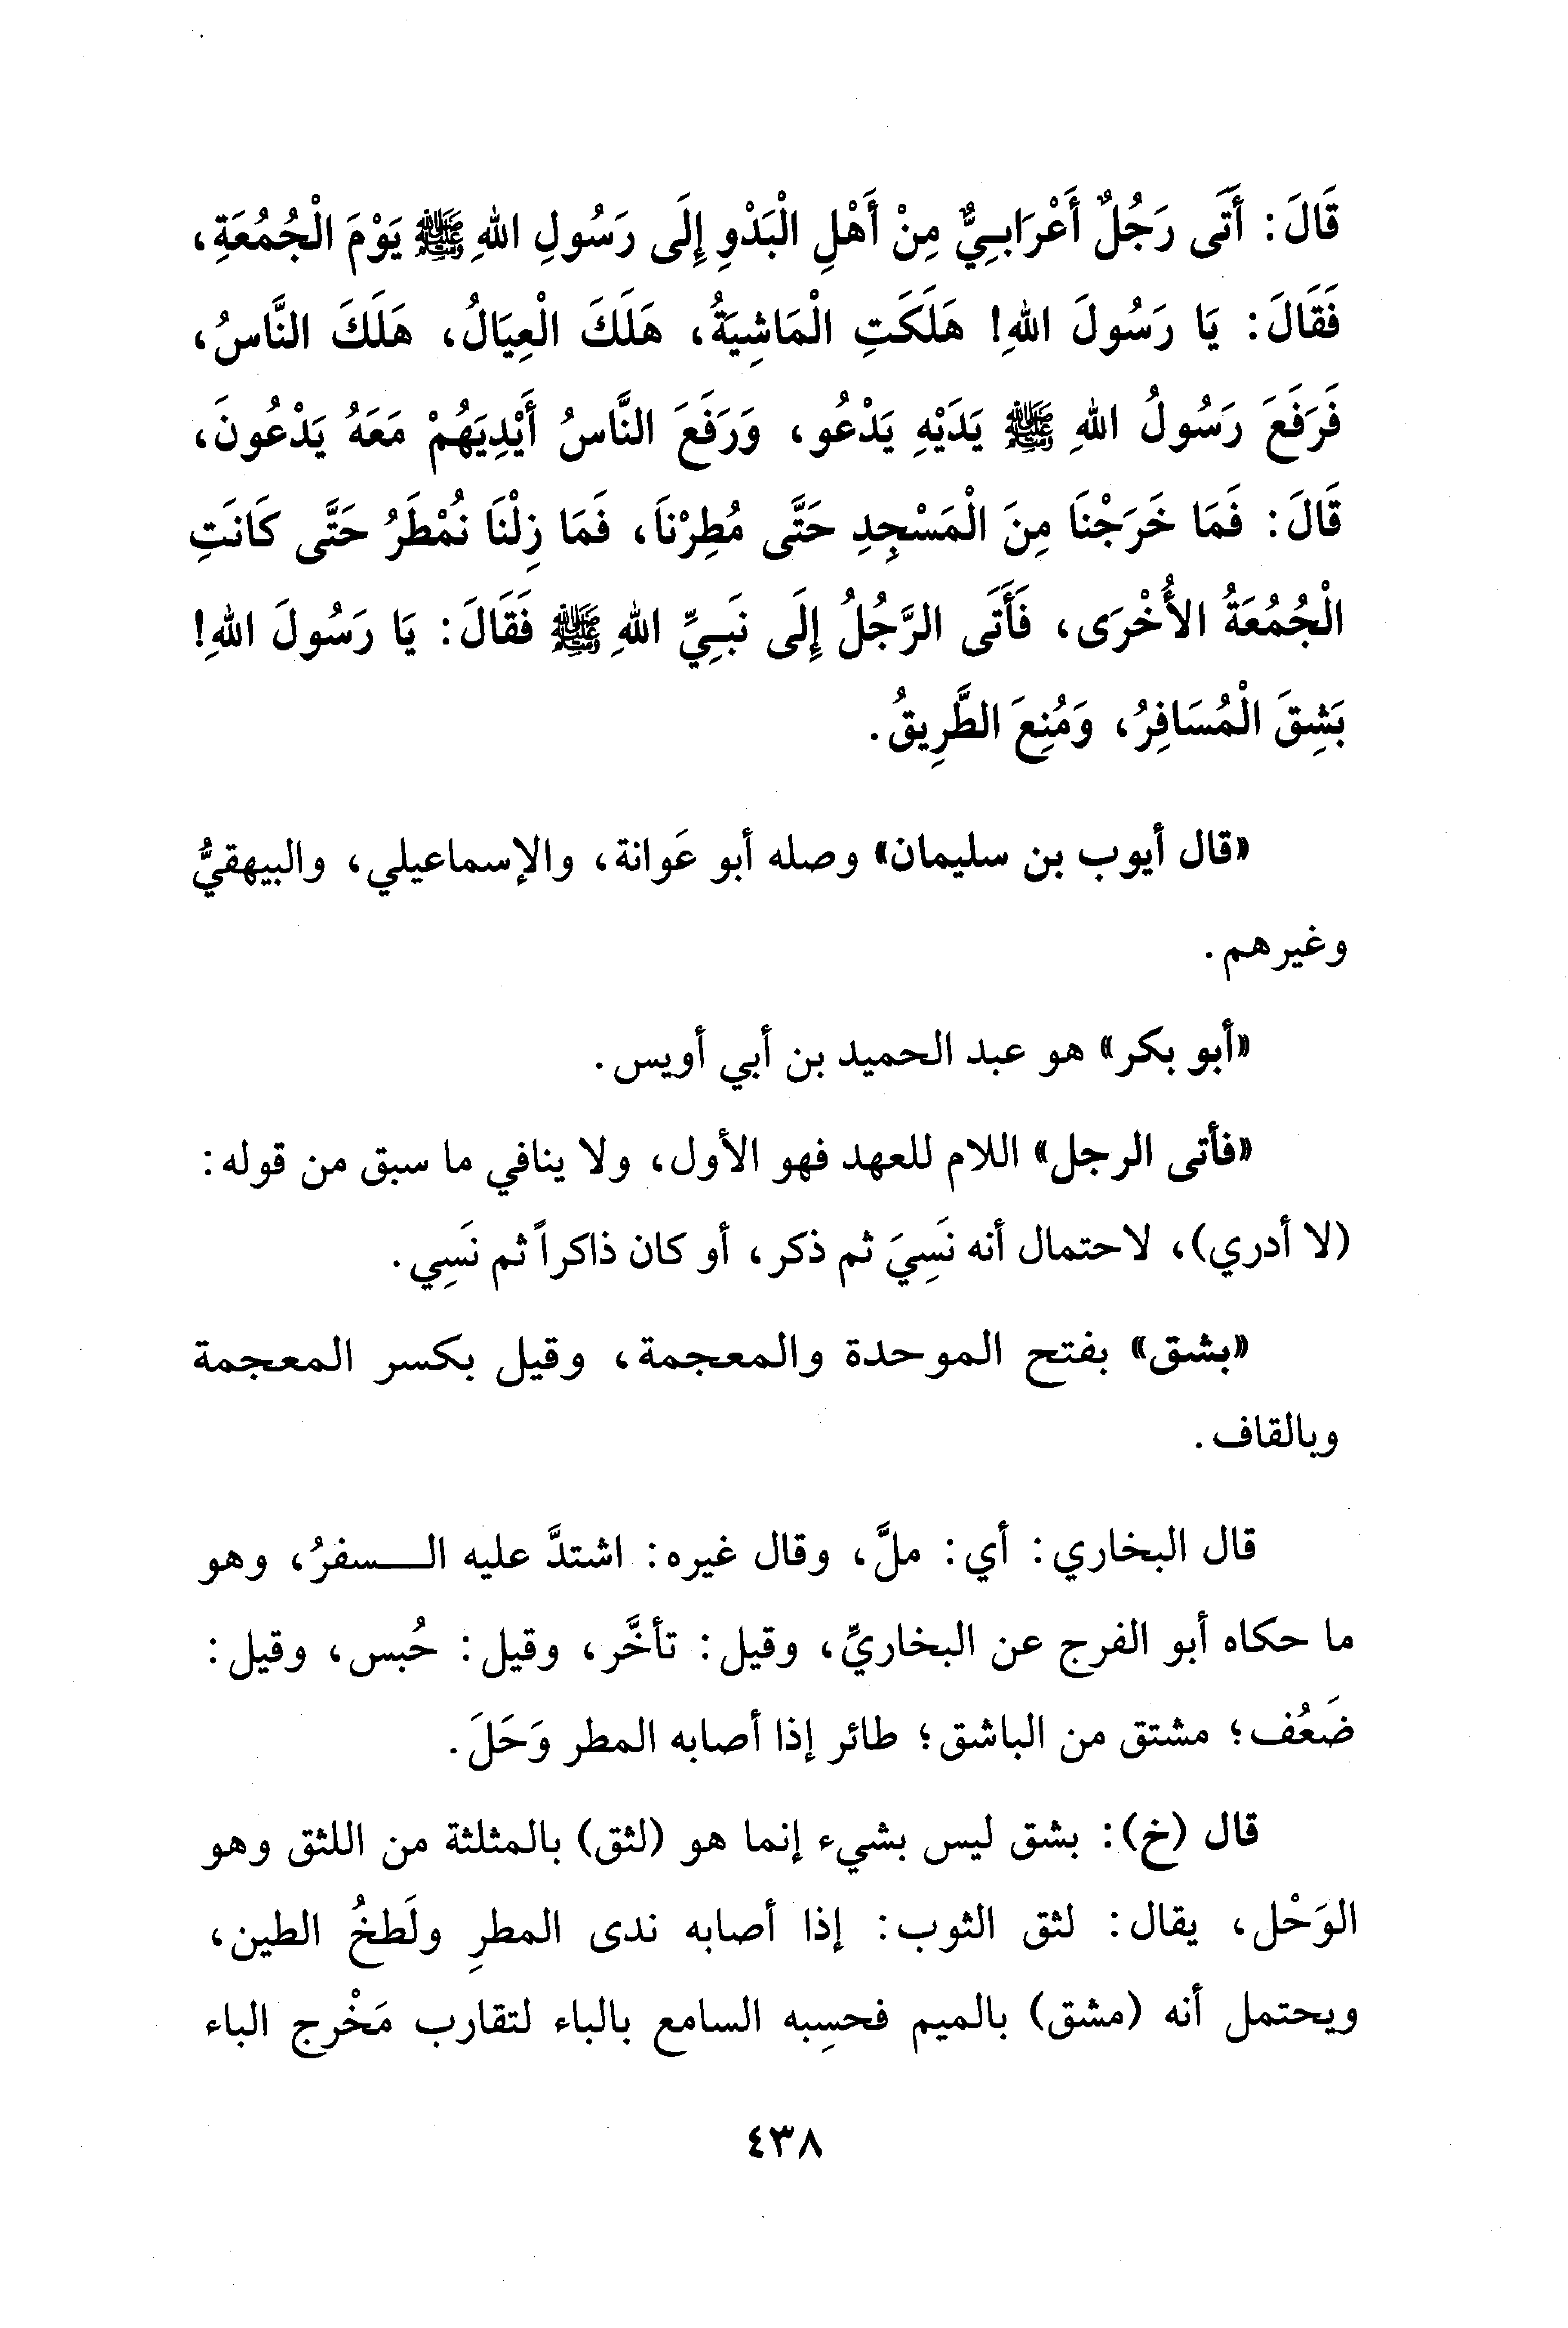 قَالَ: أَتَى رَجُلٌ أَعْرَابِيٌّ مِنْ أَهْلِ الْبَدْوِ إِلَى رَسُولِ اللهِ ﷺ يَوْمَ الْجُمُعَةِ،
فَقَالَ: يَا رَسُولَ اللهِ! هَلَكَتِ الْمَاشِيَةُ، هَلَكَ الْعِيَالُ، هَلَكَ النَّاسُ،
فَرَفَعَ رَسُولُ اللهِ ﷺ يَدَيْهِ يَدْعُو، وَرَفَعَ النَّاسُ أَيْدِيَهُمْ مَعَهُ يَدْعُونَ،
قَالَ: فَمَا خَرَجْنَا مِنَ الْمَسْجِدِ حَتَّى مُطِرْنَا، فَمَا زِلْنَا نُمْطَرُ حَتَّى كَانَتِ
الْجُمُعَةُ الأُخْرَى، فَأَتَى الرَّجُلُ إِلَى نَبِيِّ اللهِ ﷺ فَقَالَ: يَا رَسُولَ اللهِ!
بَشِقَ الْمُسَافِرُ، وَمُنِعَ الطَّرِيقُ.
«قال أيوب بن سليمان» وصله أبو عَوانة، والإسماعيلي، والبيهقيُّ
وغيرهم.
«أبو بكر» هو عبد الحميد بن أبي أويس.
«فأتى الرجل» اللام للعهد فهو الأول، ولا ينافي ما سبق من قوله:
(لا أدري)، لاحتمال أنه نَسِيَ ثم ذكر، أو كان ذاكراً ثم نَسِي.
«بشق» بفتح الموحدة والمعجمة، وقيل بكسر المعجمة
وبالقاف.
قال البخاري: أي: ملَّ، وقال غيره: اشتدَّ عليه الـسفرُ، وهو
ما حكاه أبو الفرج عن البخاريِّ، وقيل: تأخَّر، وقيل: حُبس، وقيل:
ضَعُف؛ مشتق من الباشق؛ طائر إذا أصابه المطر وَحَلَ.
قال (خ): بشق ليس بشيء إنما هو (لثق) بالمثلثة من اللثق وهو
الوَحْل، يقال: لثق الثوب: إذا أصابه ندى المطرِ ولَطخُ الطين،
ويحتمل أنه (مشق) بالميم فحسِبه السامع بالباء لتقارب مَخْرج الباء
٤٣٨